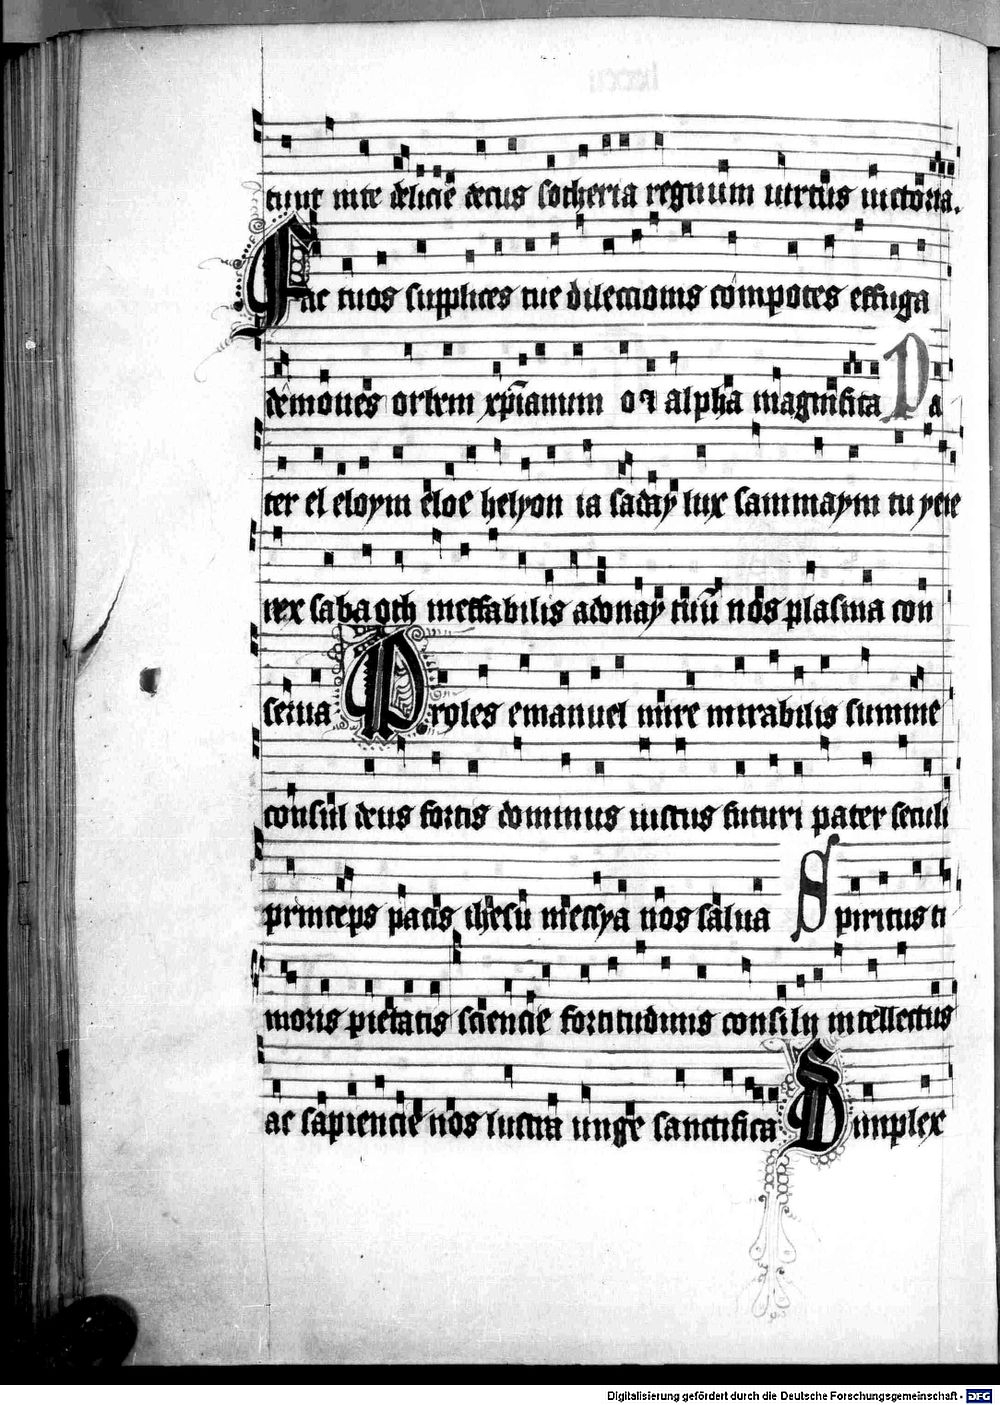 tuur mire delicie decus sotheria regnum uirtus uictoria.
Fac tuos supplices tue dileccionis compotes effuga
demones ortem xp̄ianum o et alpha magnifica Pa
ter el eloym eloe helyon ia saday lux sammaym tu yeie
rex sabaoth ineffabilis adonay tuū nos plasma con
serua Proles emanuel mire mirabilis summe
consul deus fortis dominus iustus futuri pater seculi
princeps pacis ihesu messya nos salua Spiritus ti
moris pietatis sciencie fortitudinis consilij intellectus
ac sapiencie nos lustra unge sanctifica Simplex
Digitalisierung gefördert durch die Deutsche Forschungsgemeinschaft - DFG